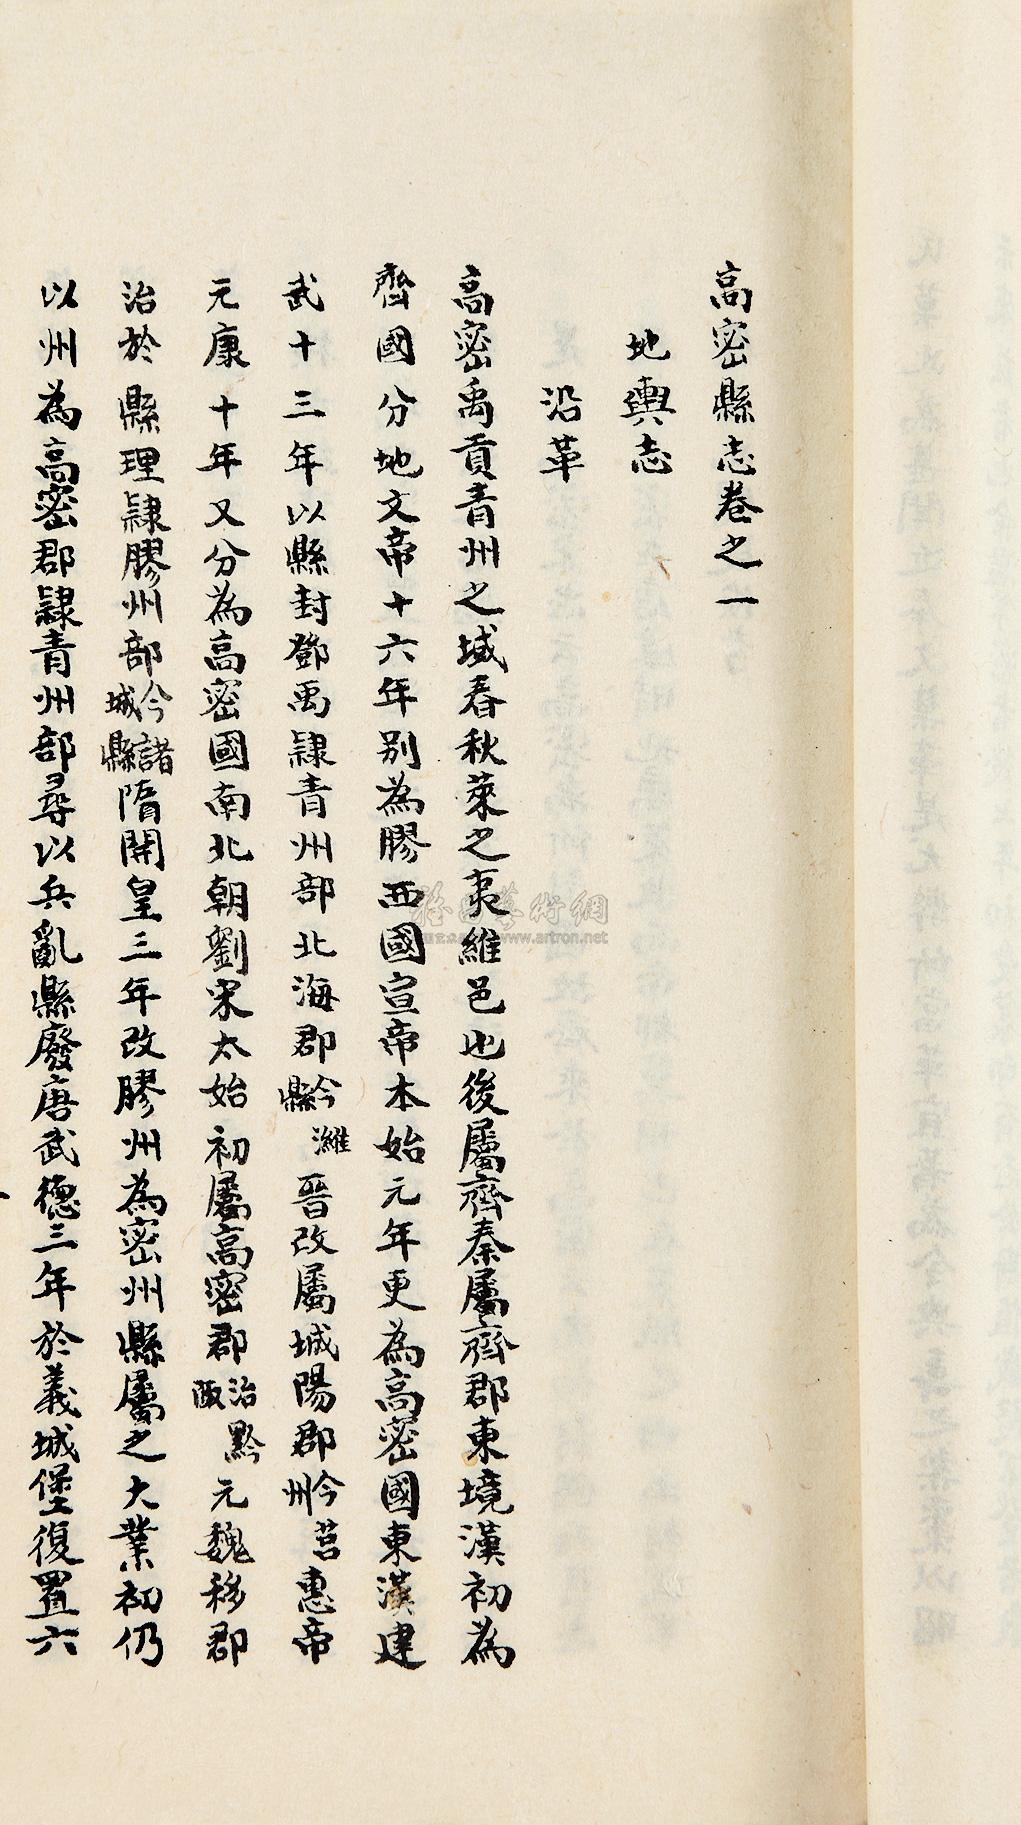 高密縣志卷之一
地輿志
沿革
高密禹貢青州之域春秋萊之夷維邑也後屬齊秦屬齊郡東境漢初為
齊國分地文帝十六年別為膠西國宣帝本始元年更為高密國東漢建
武十三年以縣封鄧禹隸青州部北海郡今濰縣晉改屬城陽郡今莒州惠帝
元康十年又分為高密國南北朝劉宋太始初屬高密郡治黔陬元魏移郡
治於縣理隸膠州部今諸城縣隋開皇三年改膠州為密州縣屬之大業初仍
以州為高密郡隸青州部尋以兵亂縣廢唐武德三年於義城堡復置六
雅昌藝術網
www.artron.net